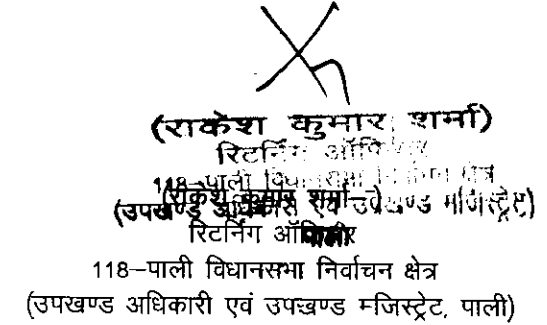 (राकेश कुमार शर्मा)
रिटर्निंग ऑफिसर
118–पाली विधानसभा निर्वाचन क्षेत्र
(राकेश कुमार शर्मा)
(उपखण्ड अधिकारी एवं उपखण्ड मजिस्ट्रेट)
रिटर्निंग ऑफिसर
पाली
118–पाली विधानसभा निर्वाचन क्षेत्र
(उपखण्ड अधिकारी एवं उपखण्ड मजिस्ट्रेट, पाली)